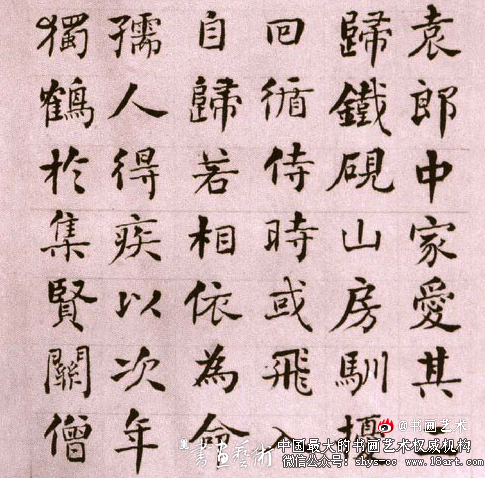 袁郎中家愛其
歸鐵硯山房馴擾
回循侍時或飛入
自歸若相依為命
孺人得疾以次年
獨鶴於集賢關僧
@书画艺术
書画藝術
中国最大的书画艺术权威机构
微信公众号: shys-cc www.18art.com